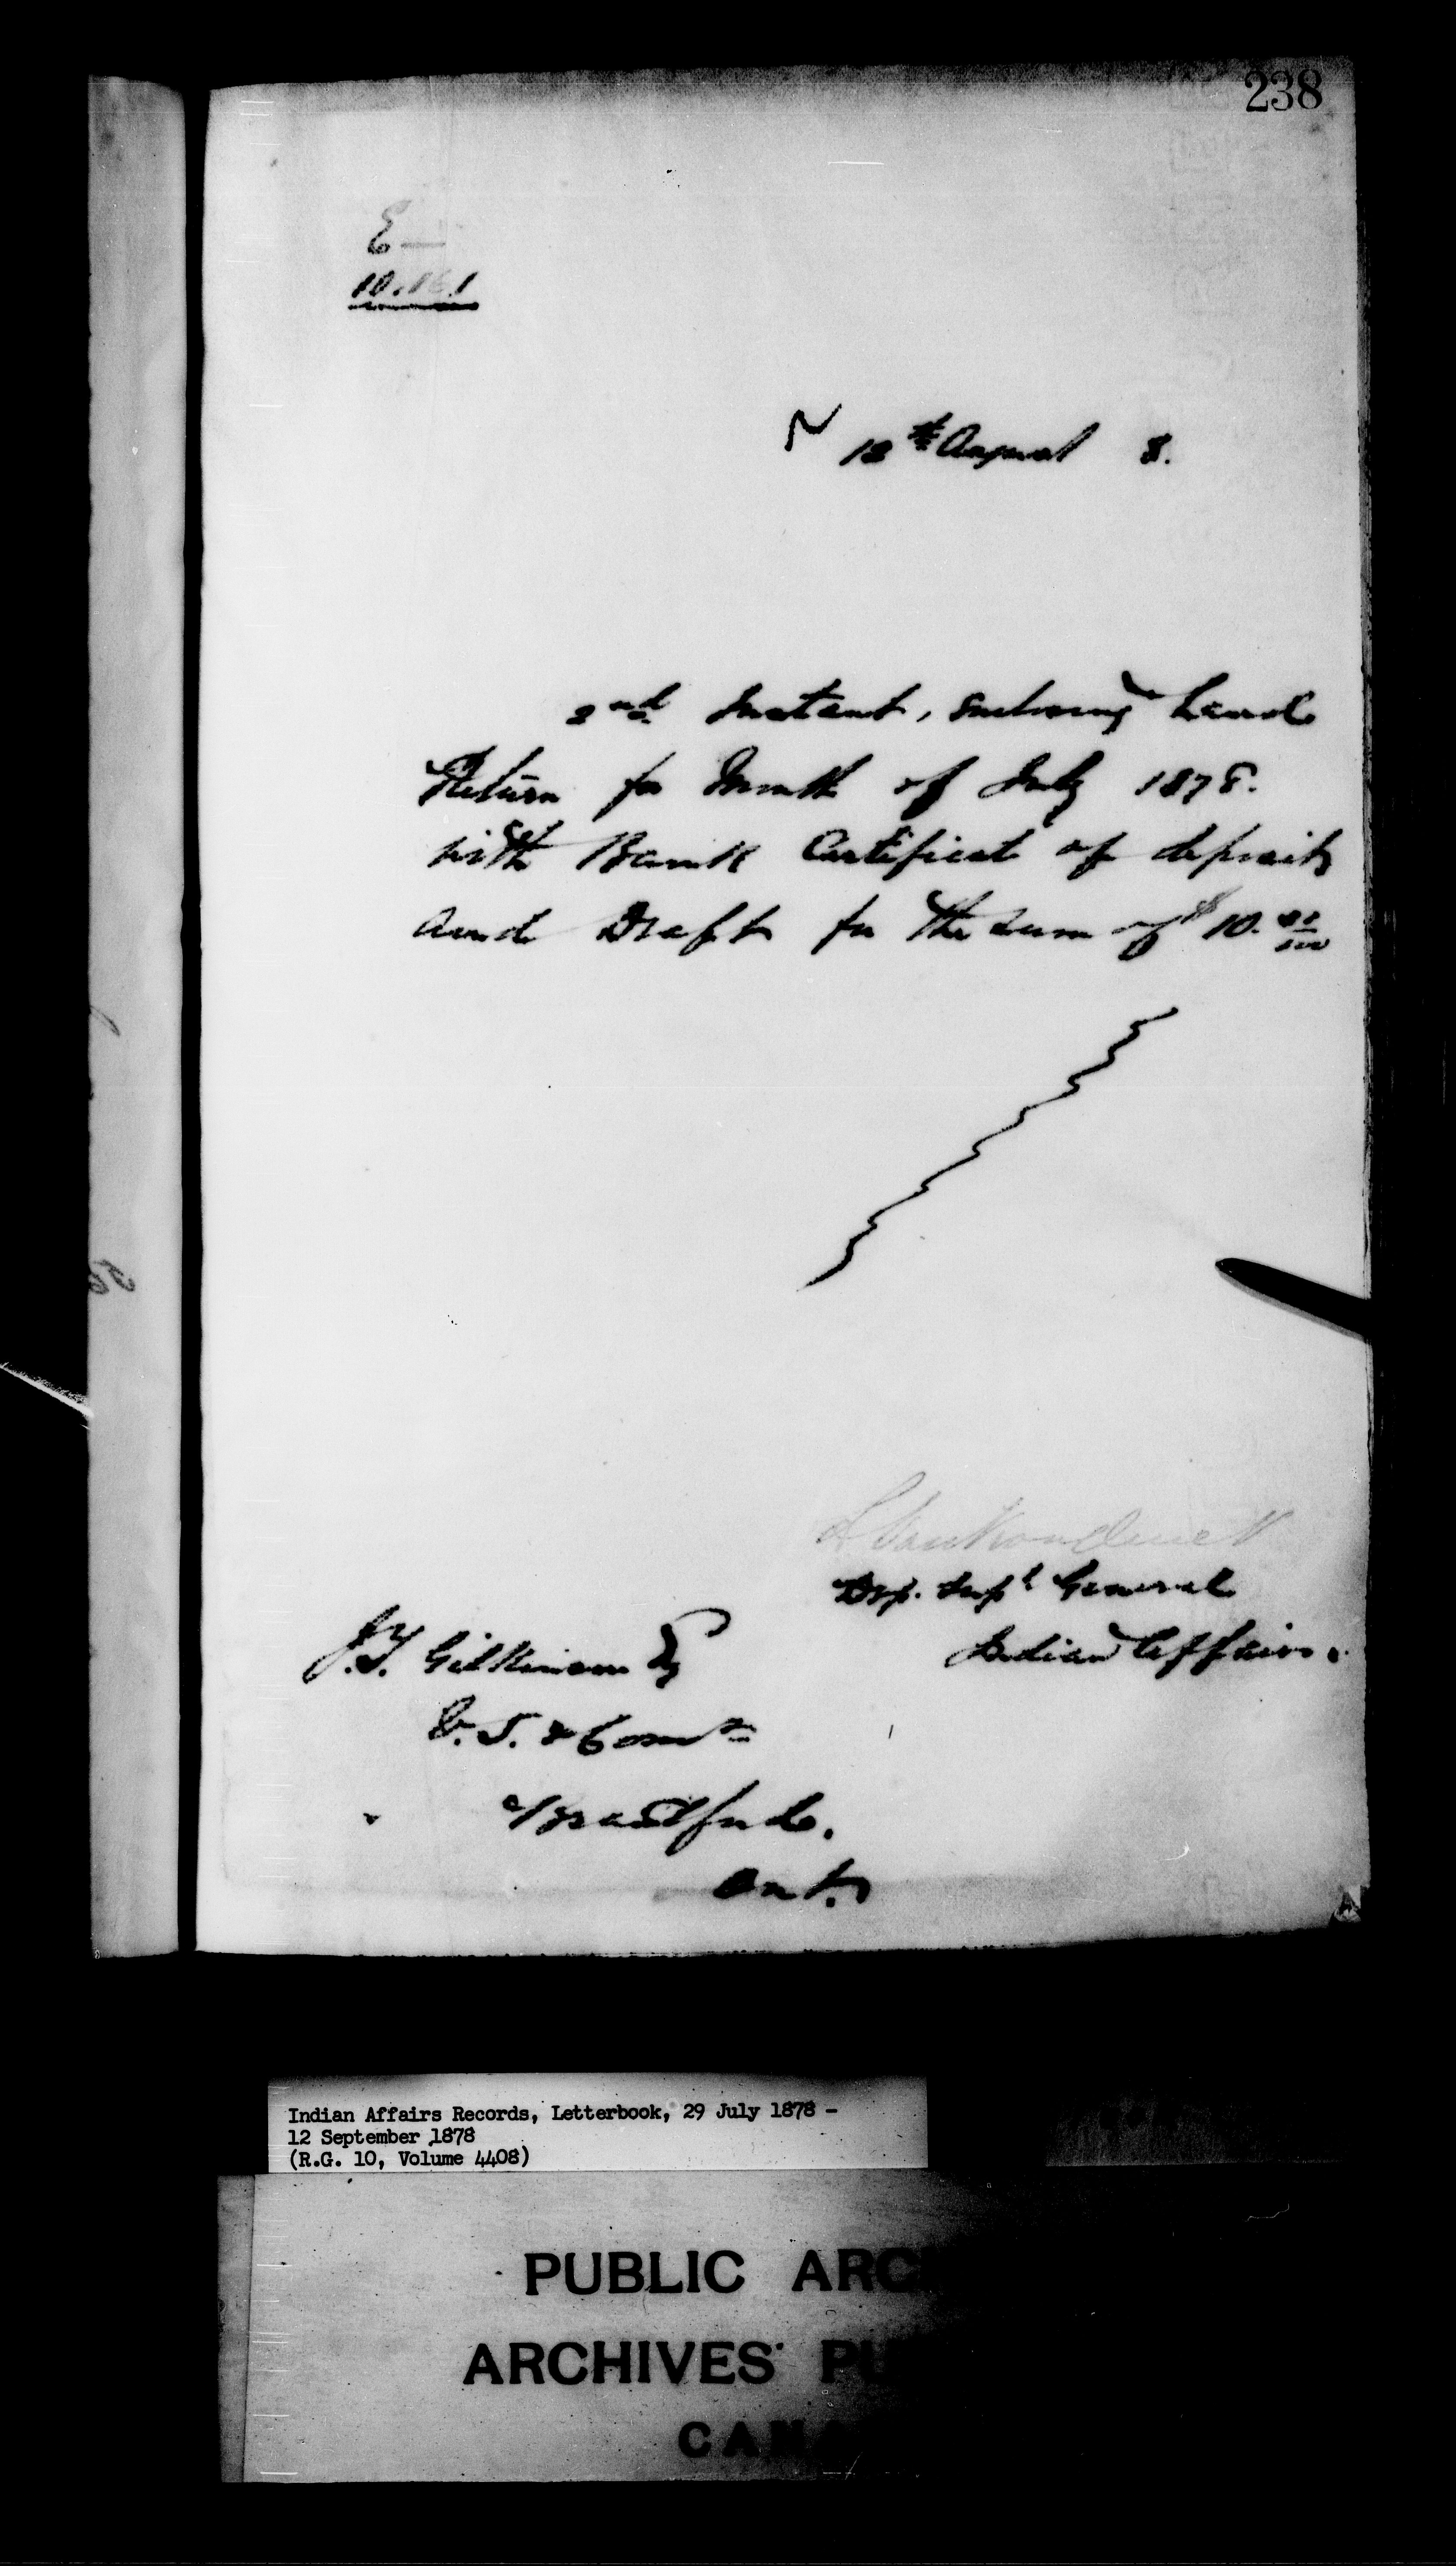 238
E
10.161
12th August 8.
2nd Instant, enclosing Land
Return for Month of July 1878.
with Bank Certificate of deposit
and Draft for the sum of $10.
L VanKoughnet
Dep. Supt General
Indian Affairs.
J.T. Gilkinson Esq
V.S. & Comr
Brantford.
Ont.
Indian Affairs Records, Letterbook, 29 July 1878 -
12 September 1878
(R.G. 10, Volume 4408)
PUBLIC ARC
ARCHIVES PU
CANA